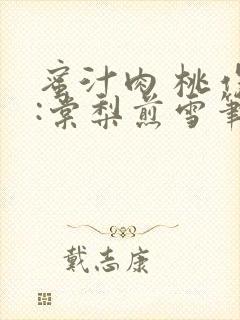 蜜汁肉桃作
:棠梨煎雪筆
戴志康